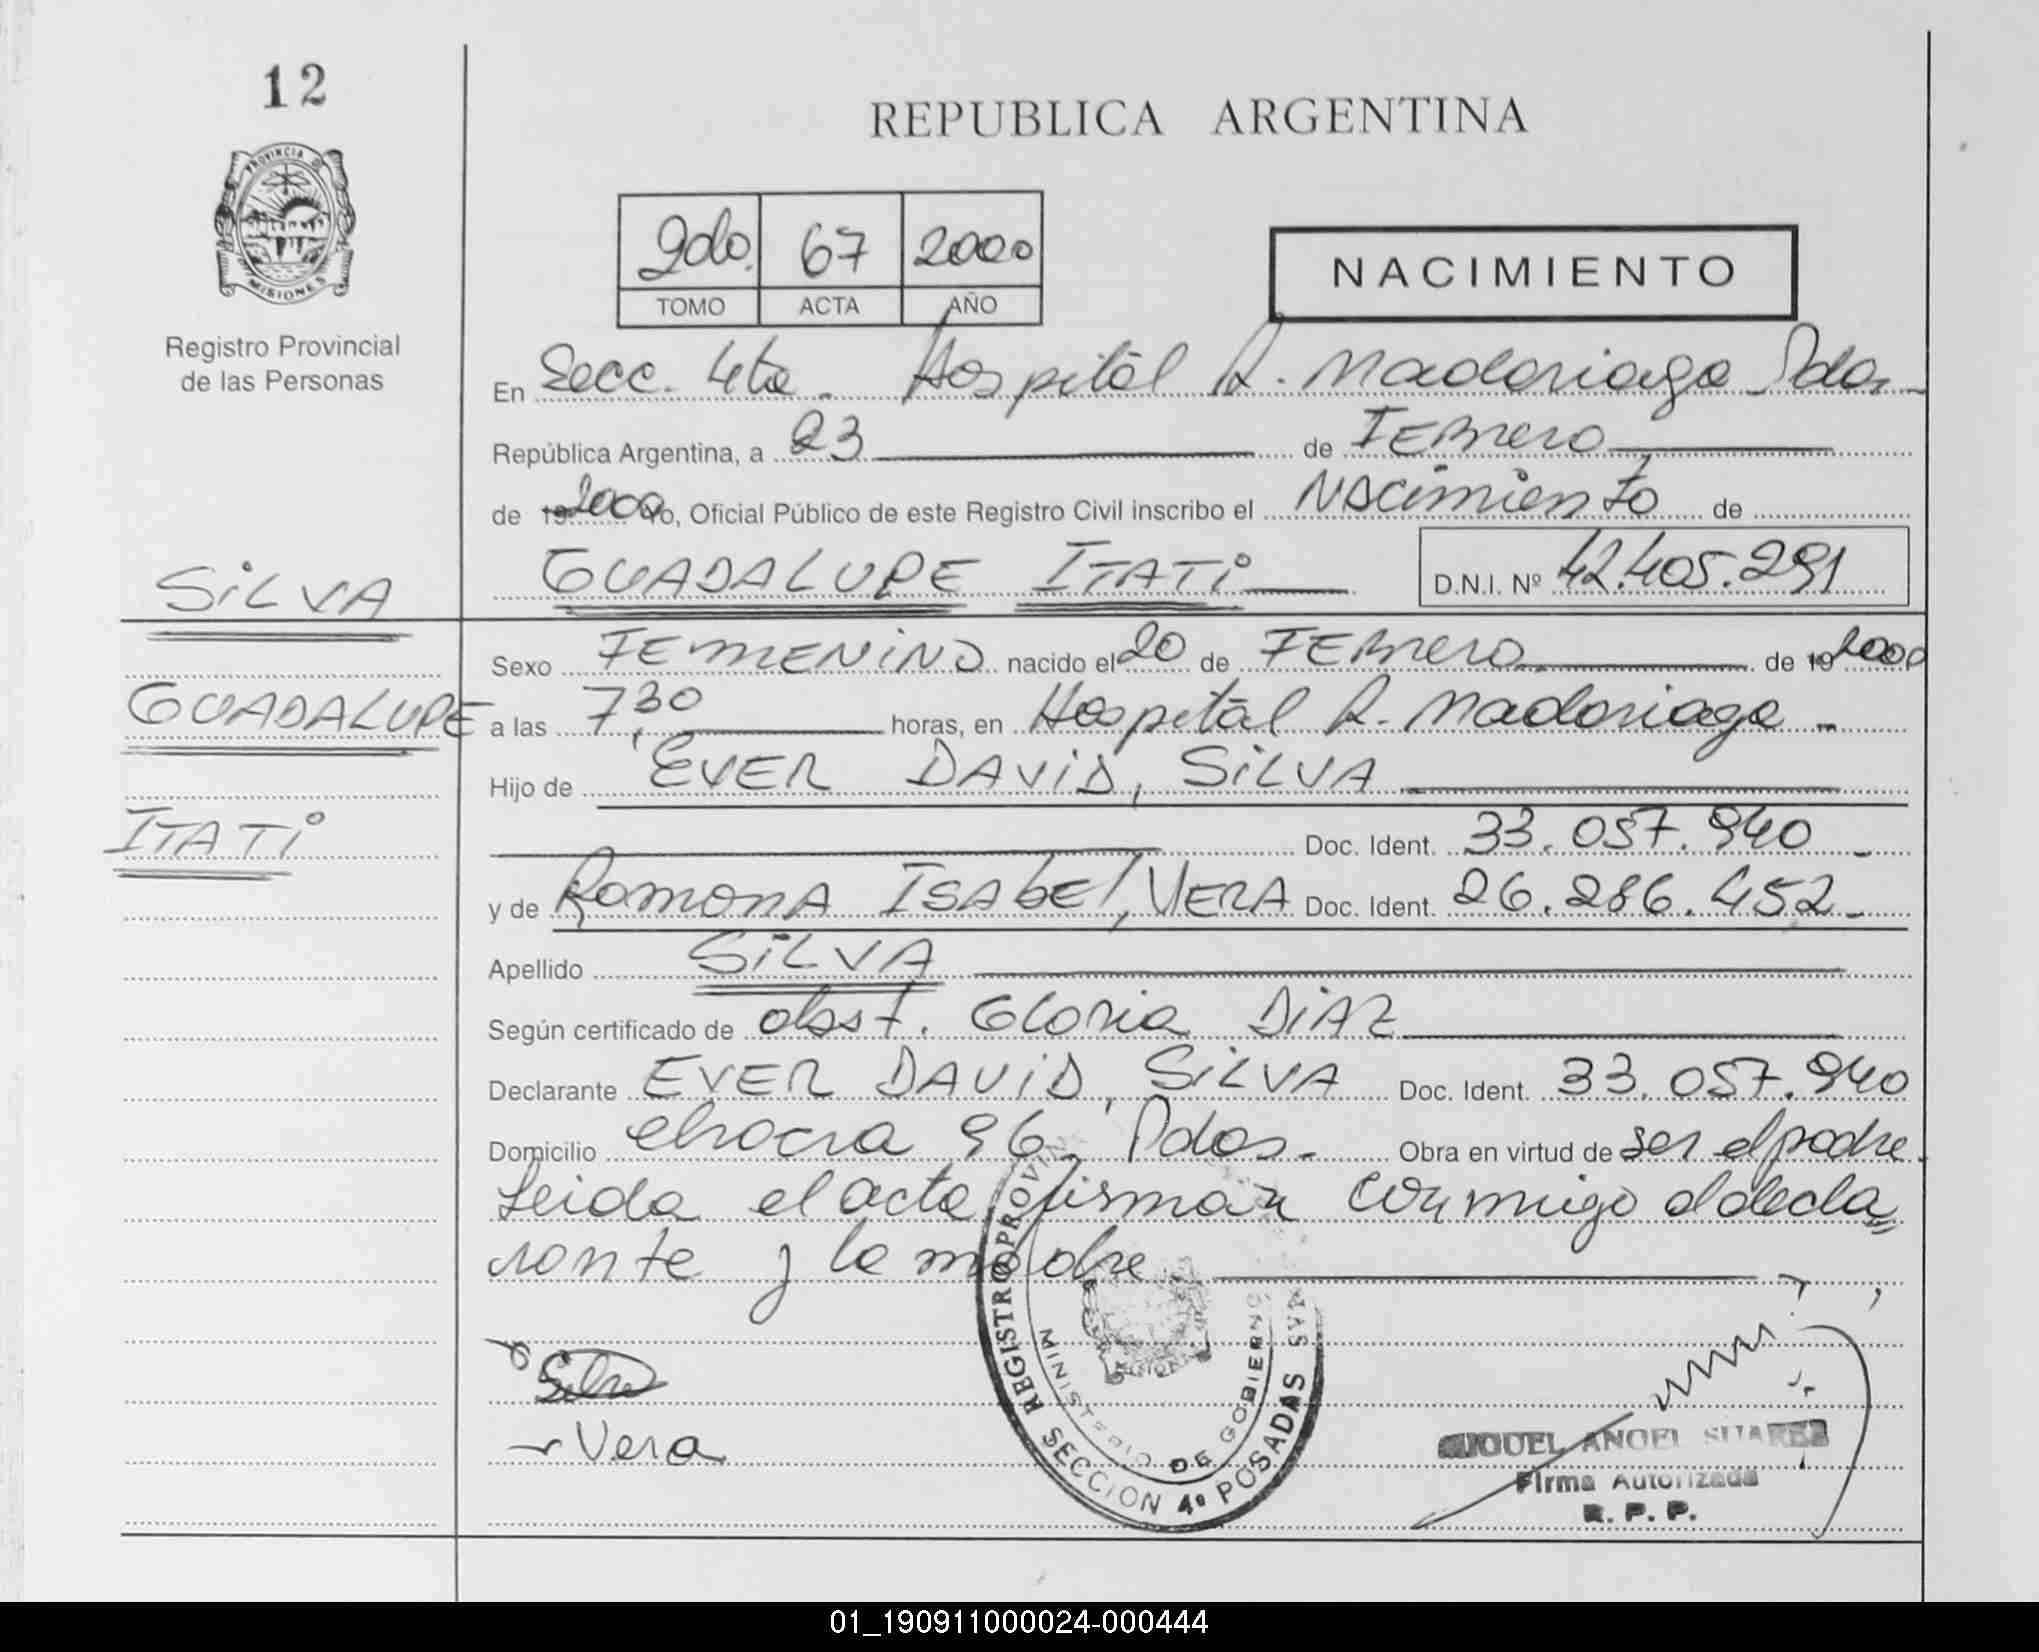 12
PROVINCIA D
MISIONES
Registro Provincial
de las Personas
REPUBLICA ARGENTINA
2do. 67 2000
TOMO ACTA AÑO
NACIMIENTO
En Secc. 4ta. Hospital R. Madariaga Pdas
República Argentina, a 23 de FEBrero
de 19 2000 Yo, Oficial Público de este Registro Civil inscribo el NAcimiento de
GUADALUPE ITATi D.N.I. Nº 42.405.291
SiLVA
GUADALUPE
ITATi
Sexo FEMENiNO nacido el 20 de FEBrero de 19 2000
a las 7,30 horas, en Hospital R. Madariaga
Hijo de EVER DAViD, SiLVA
Doc. Ident. 33.057.940
y de RamonA ISAbEl, VERA Doc. Ident. 26.286.452
Apellido SiLVA
Según certificado de obst. Gloria DiAZ
Declarante EVER DAViD, SiLVA Doc. Ident. 33.057.940
Domicilio chacra 96, Pdas. Obra en virtud de ser el padre.
Leida el acta firman conmigo el decla
rante y la madre
Silva
Vera
REGISTRO PROVIN SECCION 4ª POSADAS
MINISTERIO DE GOBIERNO
MIGUEL ANGEL SUAREZ
Firma Autorizada
R. P. P.
01_190911000024-000444